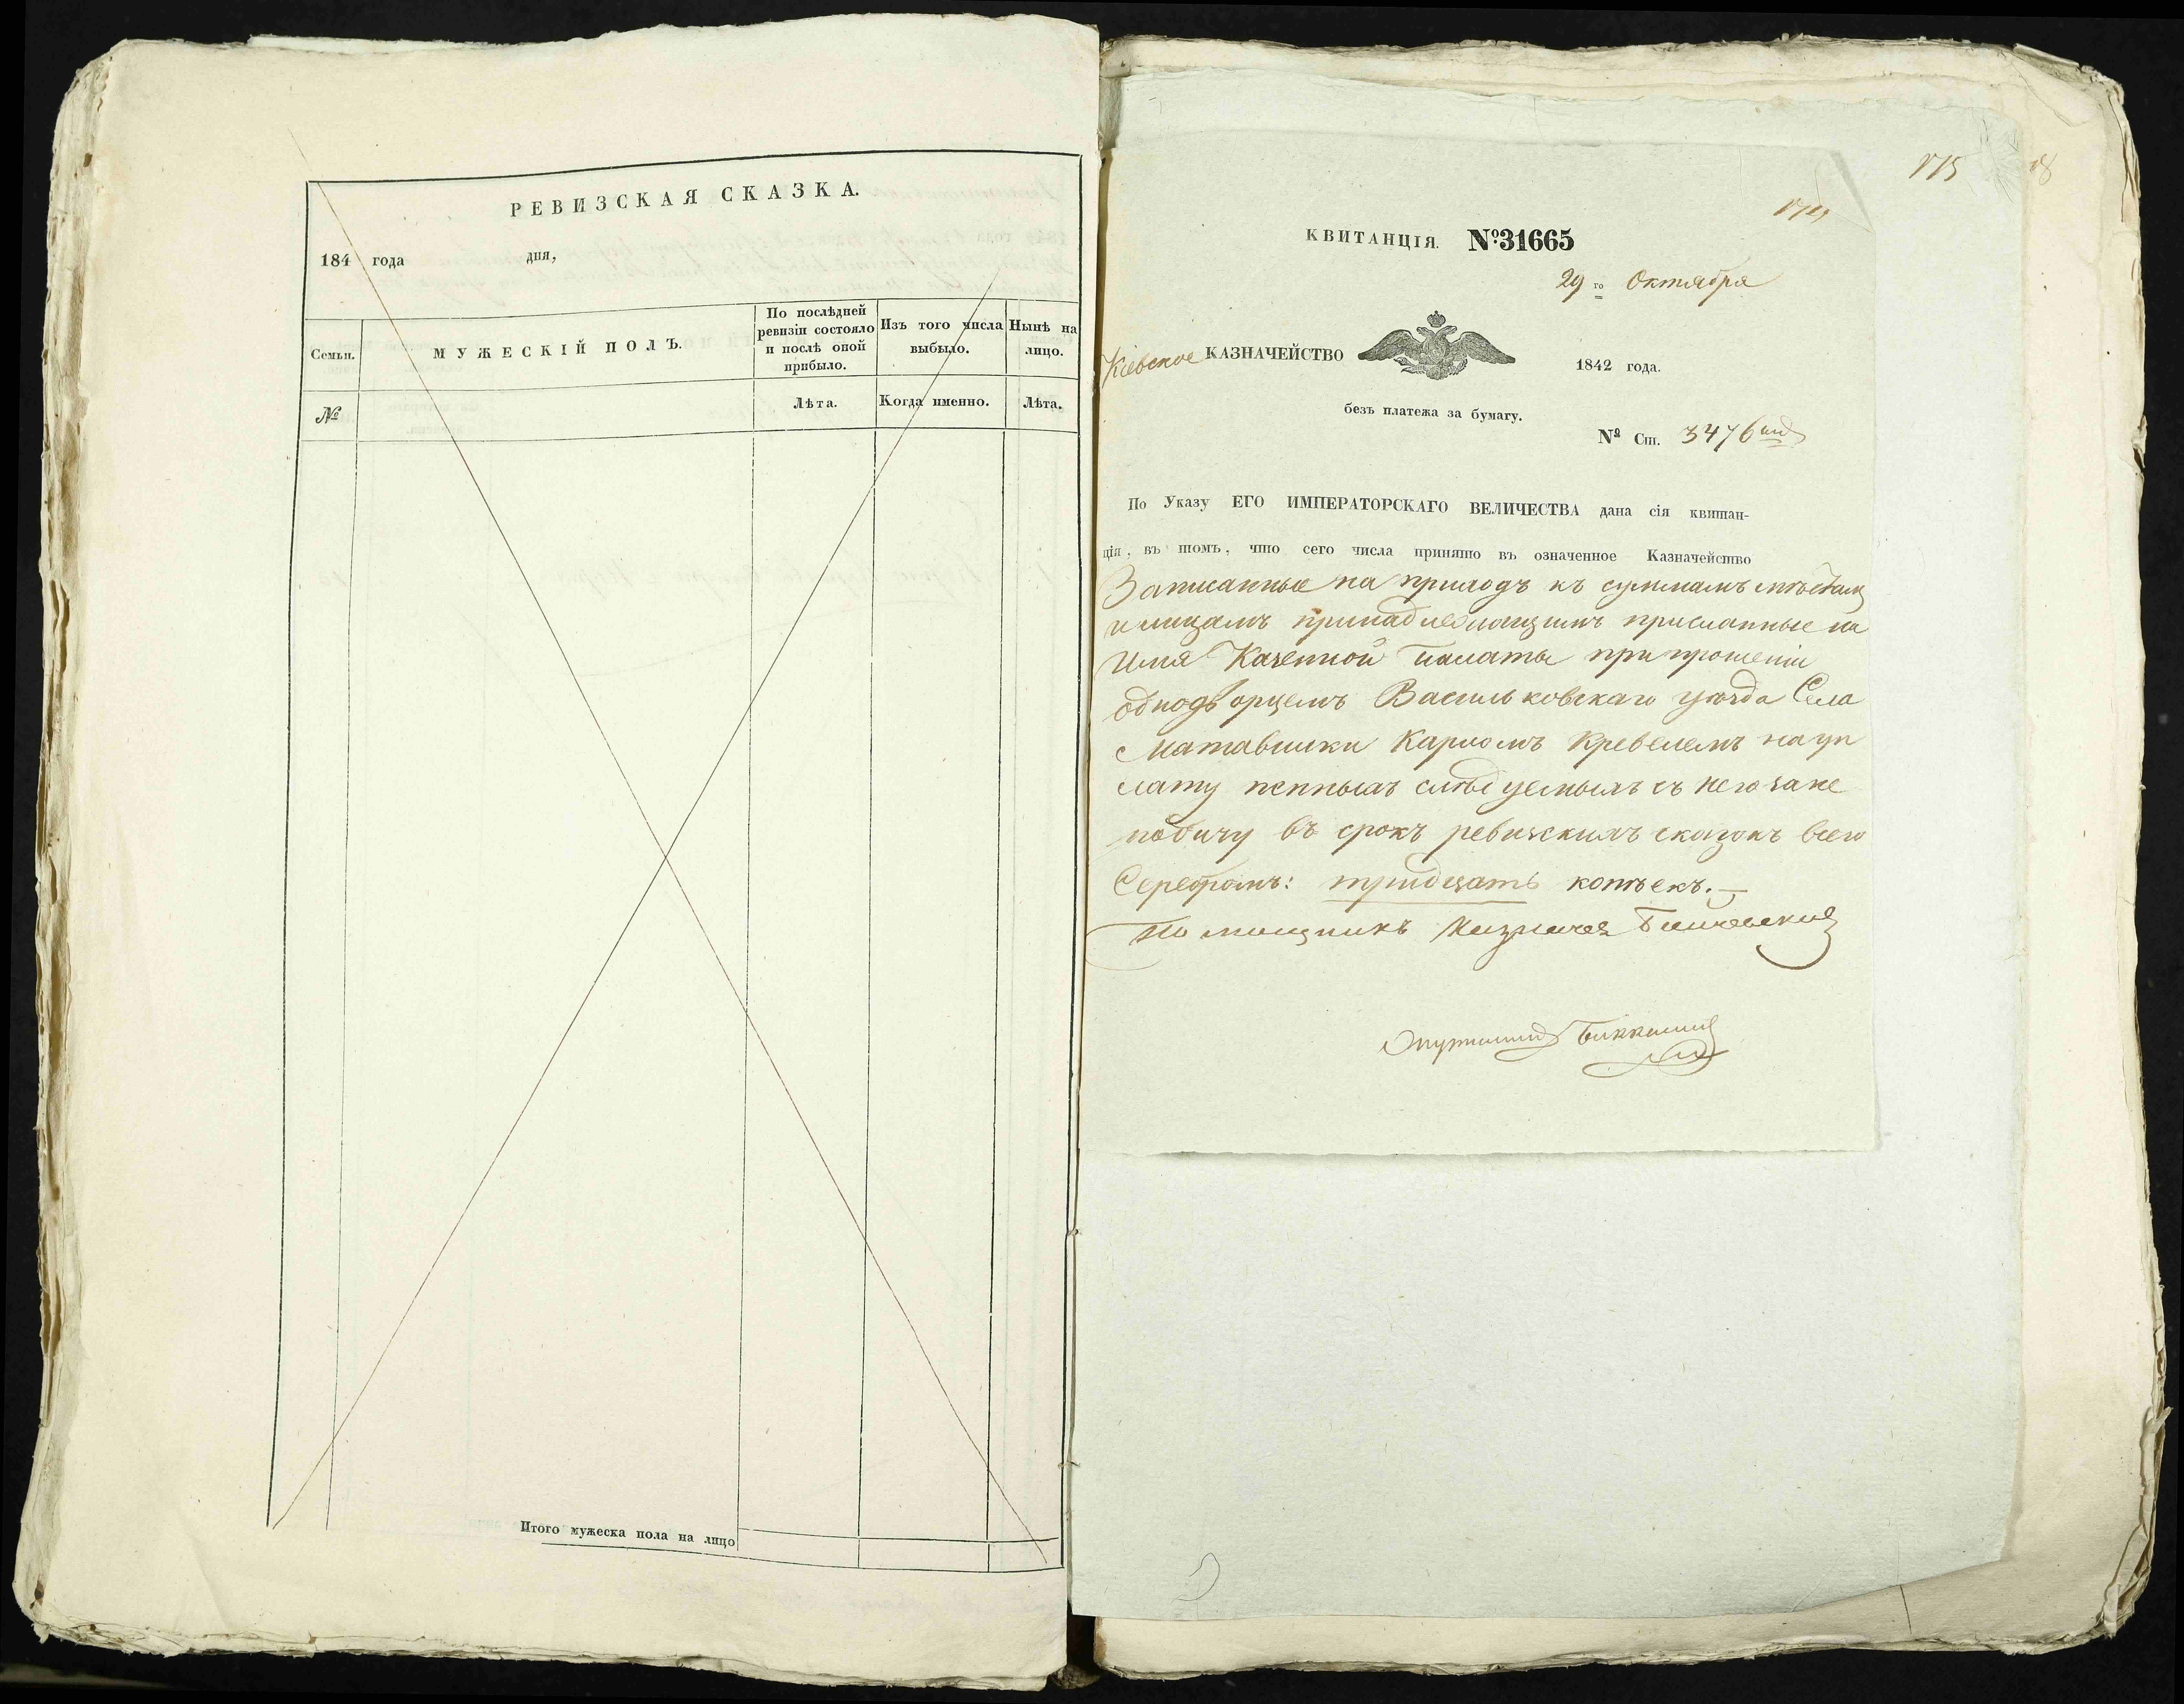 РЕВИЗСКАЯ СКАЗКА.
184 года дня,
Семьи.
МУЖЕСКІЙ ПОЛЪ.
По послѣдней ревизіи состояло и послѣ оной прибыло.
Изъ того числа выбыло.
Нынѣ на лицо.
№
Лѣта.
Когда именно.
Лѣта.
Итого мужеска пола на лицо
175
КВИТАНЦІЯ. №31665
29 го Октября
Кіевское КАЗНАЧЕЙСТВО
1842 года.
безъ платежа за бумагу.
№ Ст. 3476
По Указу ЕГО ИМПЕРАТОРСКАГО ВЕЛИЧЕСТВА дана сія квитан-
ція, въ томъ, что сего числа принято въ означенное Казначейство
Записанные на приходъ къ суммамъ мѣстамъ
и лицамъ принадлежащимъ присланные на
Имя Казенной Палаты при прошеніи
однодворцемъ Васильковскаго уѣзда Села
Карломъ Кревелемъ на уп
лату пенныхъ слѣдуемыхъ съ него за не
подачу въ срокъ ревизскихъ сказокъ всего
Серебромъ: тридцать копѣекъ.
Помощникъ Казначея